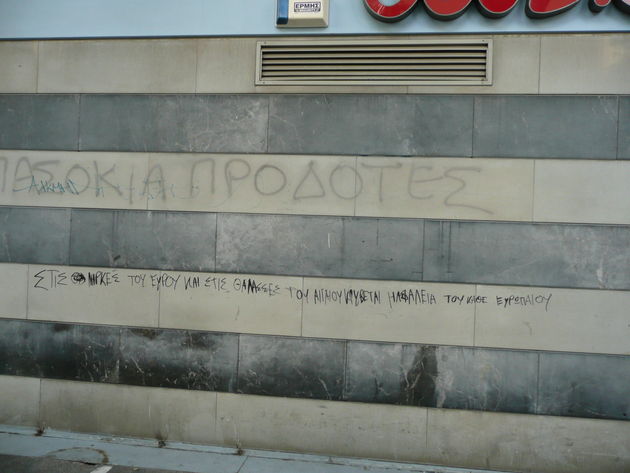 ΕΡΜΗΣ
ΠΑΣΟΚΙΑ ΠΡΟΔΟΤΕΣ
ΣΤΙΣ ΤΟΥ ΕΥΡΟΥ ΚΑΙ ΣΤΙΣ ΘΑΛΑΣΣΕΣ ΤΟΥ ΑΙΓΑΙΟΥ Η ΑΣΦΑΛΕΙΑ ΤΟΥ ΚΑΘΕ ΕΥΡΩΠΑΙΟΥ